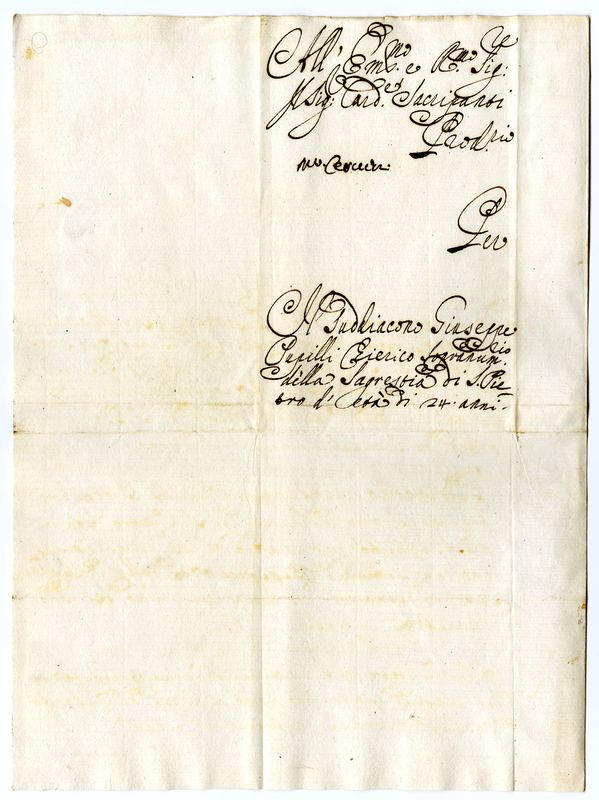 All' Em.mo e R.mo Sig.re
Il Sig. Card.l Sacripanti
Prod.rio
Per
Il Suddiacono Giuseppe
Pupilli Chierico sopranum.rio
della Sagrestia di S. Pie
tro d' età di 24 anni.